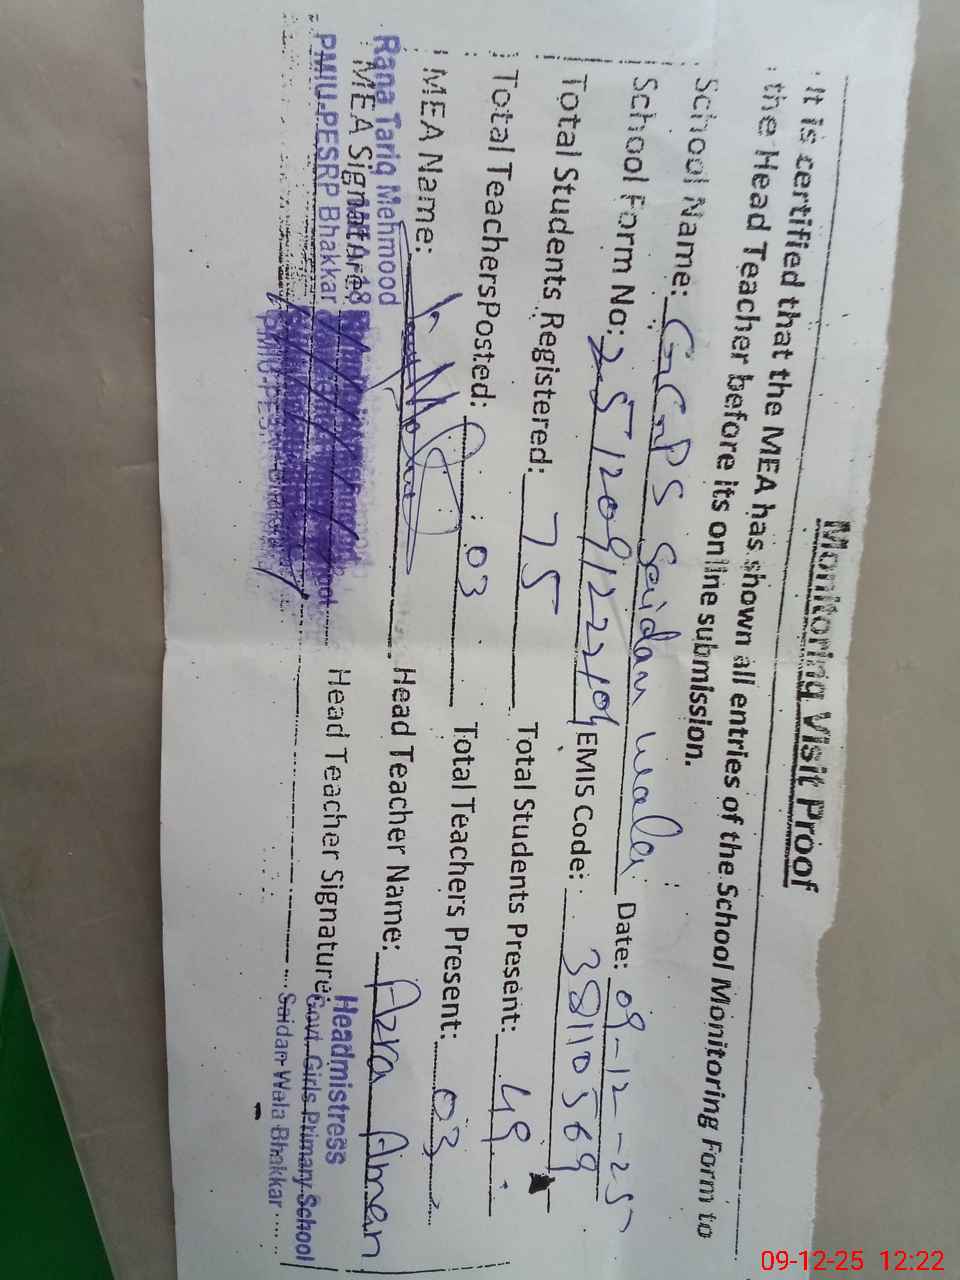 Monitoring Visit Proof
It is certified that the MEA has shown all entries of the School Monitoring Form to
the Head Teacher before its online submission.
School Name: GGPS Saidan wala Date: 09-12-25
School Form No: EMIS Code: 38110569
Total Students Registered: 75 Total Students Present: 49
Total Teachers Posted: 03 Total Teachers Present: 03
MEA Name: Head Teacher Name: Azra Amen
Rana Tariq Mehmood
MEA Signature Head Teacher Signature:
PMIU-PESRP Bhakkar
Headmistress
Govt. Girls Primary School
Saidan Wala Bhakkar
09-12-25 12:22